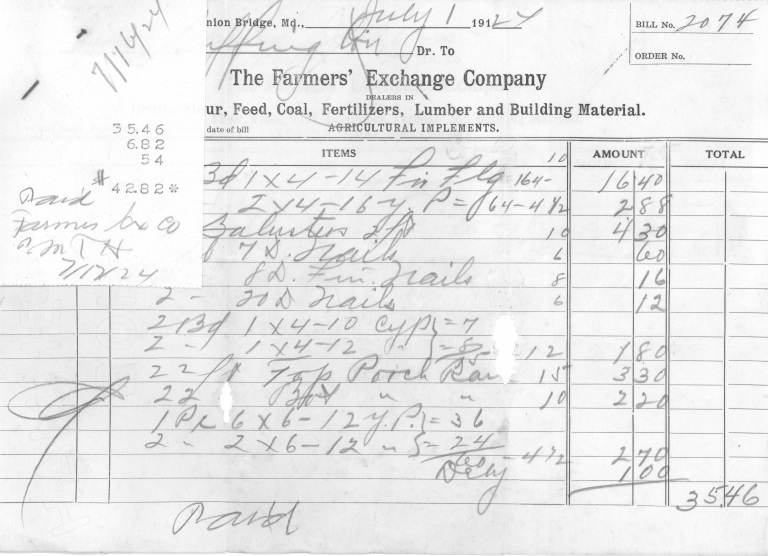 7/16/24
35.46
6.82
54
$ 42.82 *
Paid
Farmers Ex Co
7/17/24
nion Bridge, Md., July 1 1924
BILL No. 2074
ORDER No.
Dr. To
The Farmers' Exchange Company
DEALERS IN
ur, Feed, Coal, Fertilizers, Lumber and Building Material.
date of bill AGRICULTURAL IMPLEMENTS.
ITEMS AMOUNT TOTAL
Bd 1 X 4-14 Fin Flg 164- 10 16 40
2 X 4-16 y. P = 64-4 1/2 2 88
Balusters 2 ft 10 4 30
7 D. Nails 6 60
8 D. Fin. Nails 8 16
2 - 20 D Nails 6 12
2 Bd 1 X 4-10 Cyp } = 7
2 - 1 X 4-12 " } = 8 12 1 80
22 ft Top Porch Rail 15 3 30
22 Bot " " 10 2 20
1 Pc 6 X 6-12 y.P. } = 36
2 - 2 X 6-12 " } = 24
60 - 4 1/2 2 70
Dely 1 00
35.46
Paid